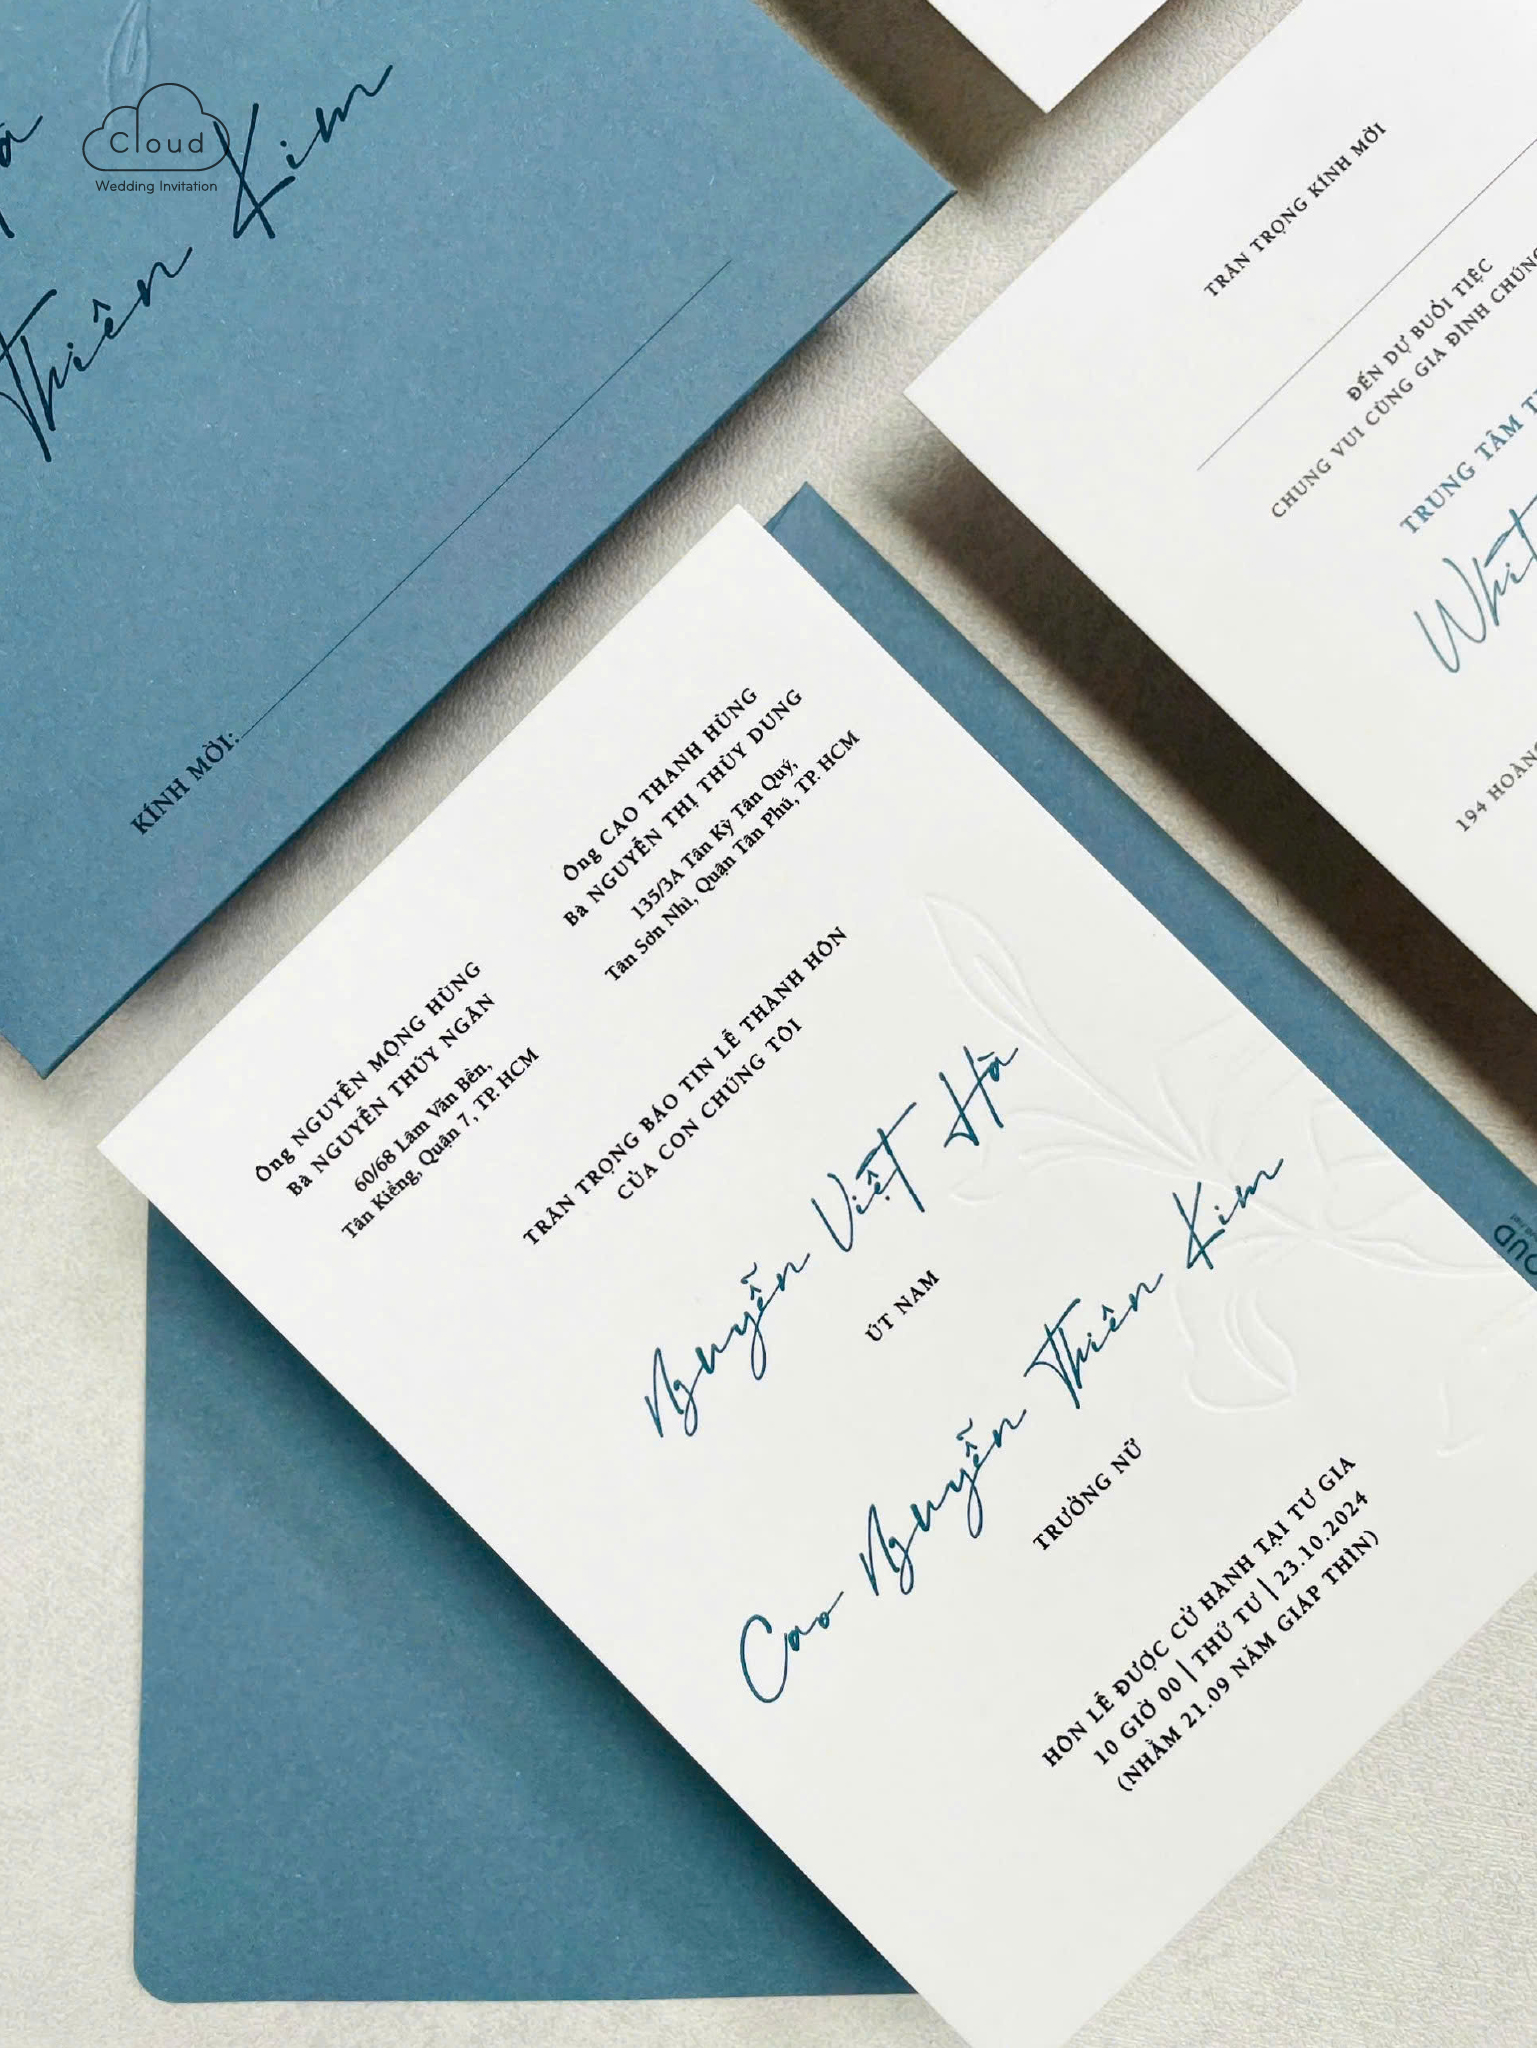 Cloud
Wedding Invitation
Thiên Kim
KÍNH MỜI:
TRÂN TRỌNG KÍNH MỜI
ĐẾN DỰ BUỔI TIỆC
CHUNG VUI CÙNG GIA ĐÌNH CHÚNG
TRUNG TÂM
194 HOÀNG
Ông NGUYỄN MỘNG HÙNG
Bà NGUYỄN THÚY NGÂN
60/68 Lâm Văn Bền,
Tân Kiểng, Quận 7, TP. HCM
Ông CAO THANH HÙNG
Bà NGUYỄN THỊ THÙY DUNG
135/3A Tân Kỳ Tân Quý,
Tân Sơn Nhì, Quận Tân Phú, TP. HCM
TRÂN TRỌNG BÁO TIN LỄ THÀNH HÔN
CỦA CON CHÚNG TÔI
Nguyễn Việt Hà
ÚT NAM
Cao Nguyễn Thiên Kim
TRƯỞNG NỮ
HÔN LỄ ĐƯỢC CỬ HÀNH TẠI TƯ GIA
10 GIỜ 00 | THỨ TƯ | 23.10.2024
(NHẰM 21.09 NĂM GIÁP THÌN)